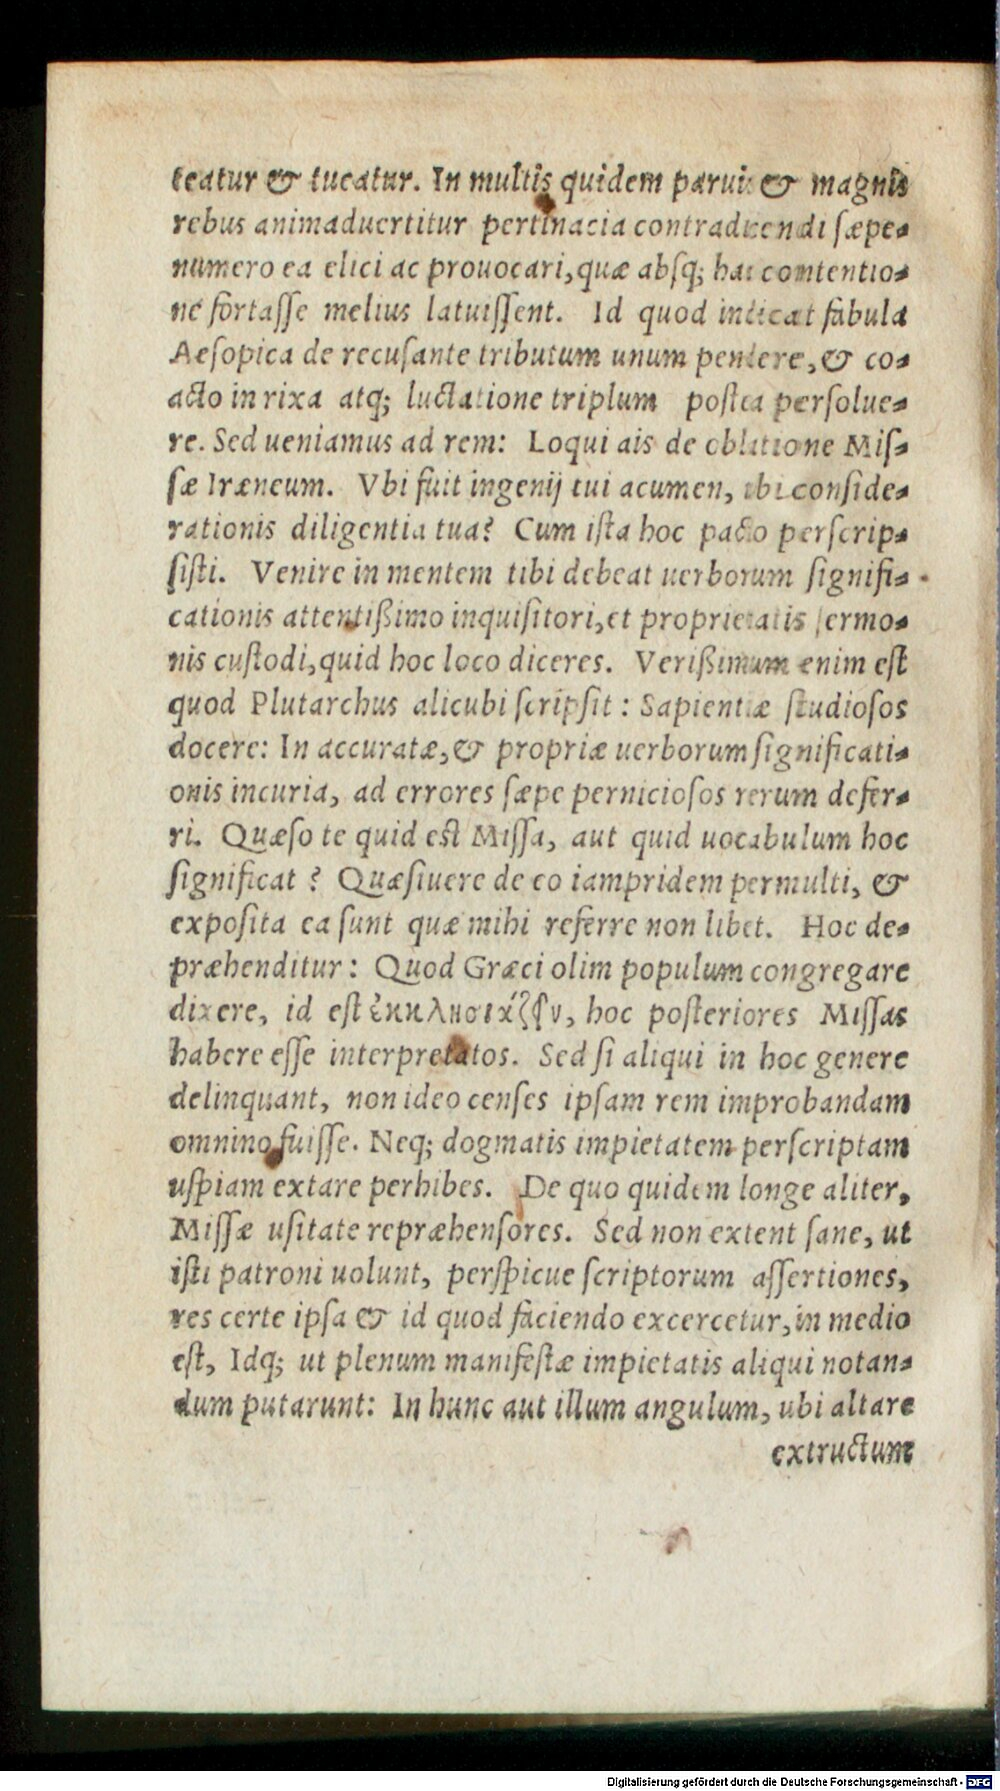 teatur & tueatur. In multis quidem paruis & magnis
rebus animaduertitur pertinacia contradicendi sæpe-
numero ea elici ac prouocari, quæ absq; hac contentio-
ne fortasse melius latuissent. Id quod indicat fabula
Aesopica de recusante tributum unum pendere, & co-
acto in rixa atq; luctatione triplum postea persolue-
re. Sed ueniamus ad rem: Loqui ais de oblatione Mis-
sæ Iræneum. Vbi fuit ingenij tui acumen, ubi conside-
rationis diligentia tua? Cum ista hoc pacto perscrip-
sisti. Venire in mentem tibi debeat uerborum signifi-
cationis attentißimo inquisitori, et proprietatis sermo-
nis custodi, quid hoc loco diceres. Verißimum enim est
quod Plutarchus alicubi scripsit: Sapientiæ studiosos
docere: In accuratæ, & propriæ uerborum significati-
onis incuria, ad errores sæpe perniciosos rerum defer-
ri. Quæso te quid est Missa, aut quid uocabulum hoc
significat? Quæsiuere de eo iampridem permulti, &
exposita ea sunt quæ mihi referre non libet. Hoc de-
præhenditur: Quod Græci olim populum congregare
dixere, id est ἐκκλησιάζειν, hoc posteriores Missas
habere esse interpretatos. Sed si aliqui in hoc genere
delinquant, non ideo censes ipsam rem improbandam
omnino fuisse. Neq; dogmatis impietatem perscriptam
uspiam extare perhibes. De quo quidem longe aliter,
Missæ usitate repræhensores. Sed non extent sane, ut
isti patroni uolunt, perspicue scriptorum assertiones,
res certe ipsa & id quod faciendo excercetur, in medio
est, Idq; ut plenum manifestæ impietatis aliqui notan-
dum putarunt: In hunc aut illum angulum, ubi altare
extructum
Digitalisierung gefördert durch die Deutsche Forschungsgemeinschaft - DFG